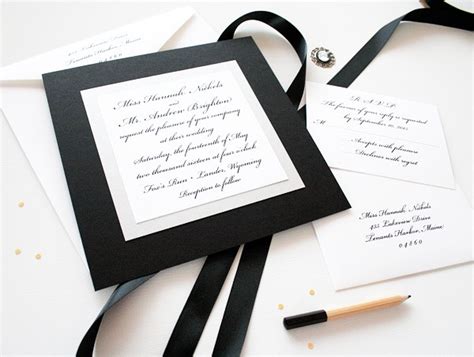 Miss Hannah Nichols
and
Mr. Andrew Brighton
request the pleasure of your company
at their wedding
Saturday, the fourteenth of May
two thousand sixteen at four o'clock
Fox's Run - Lander, Wyoming
Reception to follow
R.S.V.P.
The favour of your reply is requested
by September
M
Accepts with pleasure
Declines with regret
Miss Hannah Nichols
455 Lakeview Drive
Tenants Harbor, Maine
04860
Lakeview Drive
Tenants Harbor, Maine
04860